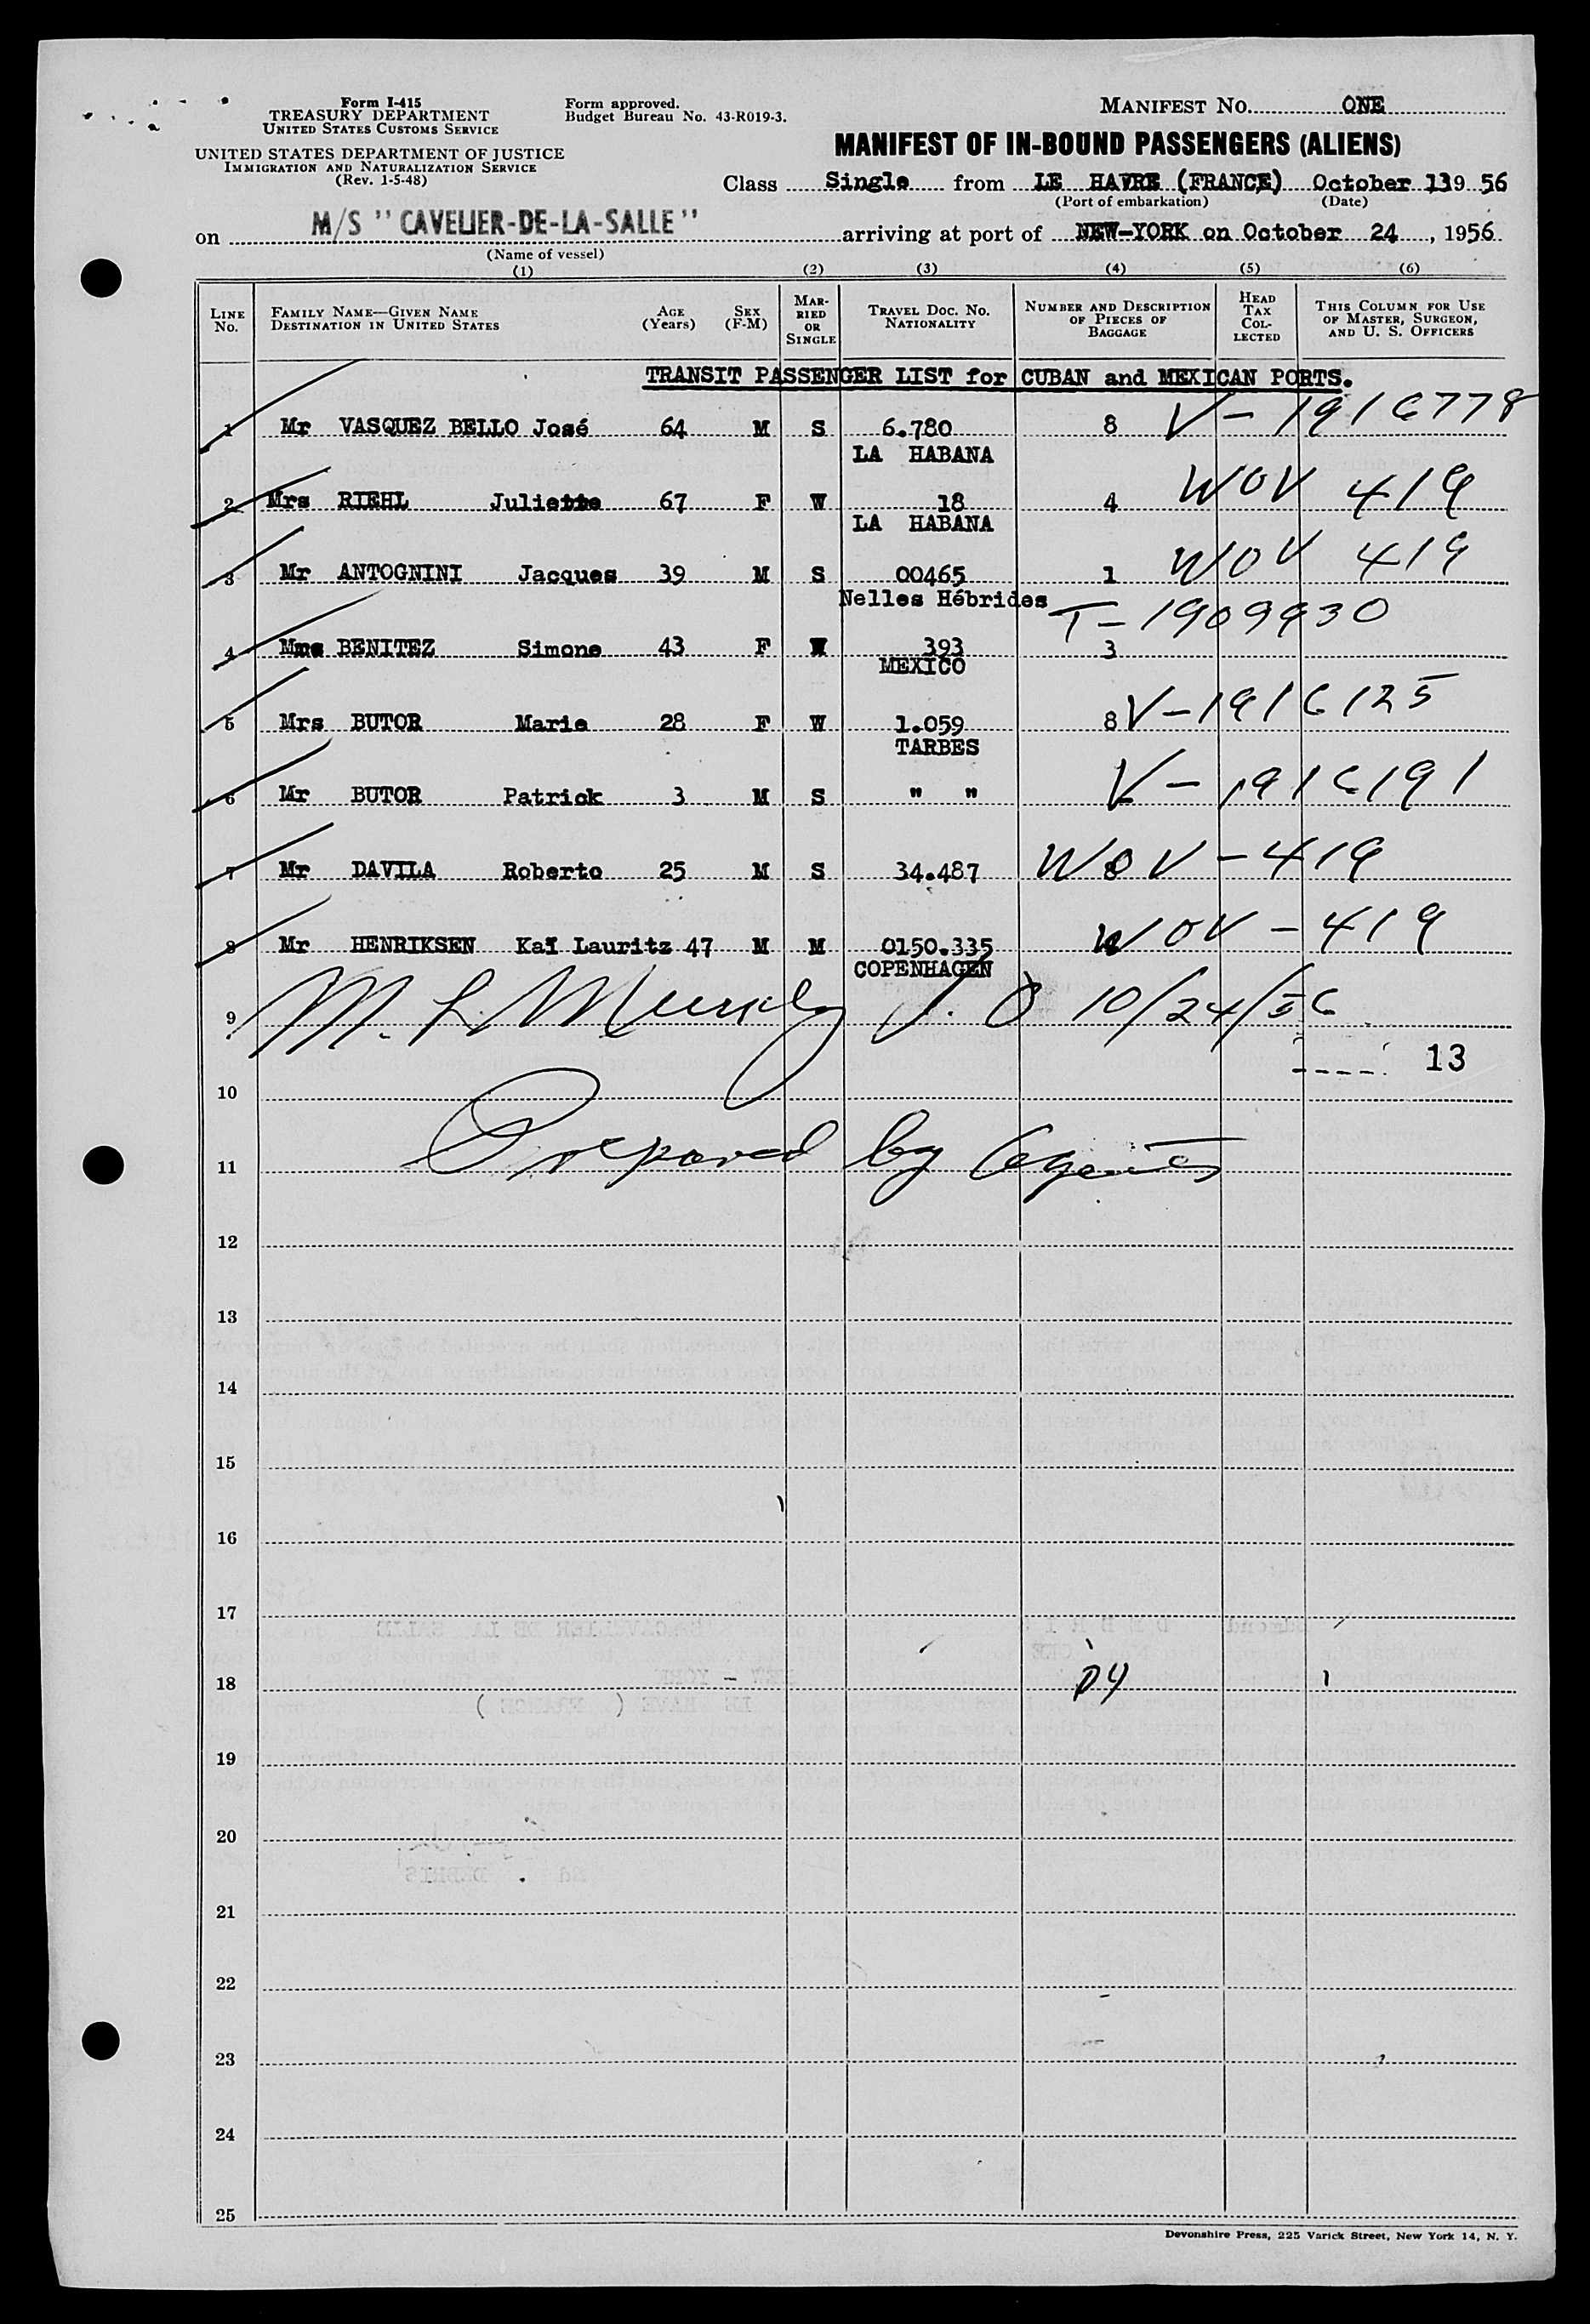 Form I-415
TREASURY DEPARTMENT
UNITED STATES CUSTOMS SERVICE
UNITED STATES DEPARTMENT OF JUSTICE
IMMIGRATION AND NATURALIZATION SERVICE
(Rev. 1-5-48)
Form approved.
Budget Bureau No. 43-R019-3.
MANIFEST NO. ONE
MANIFEST OF IN-BOUND PASSENGERS (ALIENS)
Class Single from LE HAVRE (FRANCE) October 13 19 56
(Port of embarkation) (Date)
on M/S "CAVELIER-DE-LA-SALLE" arriving at port of NEW-YORK on October 24, 1956
(Name of vessel)
(1) (2) (3) (4) (5) (6)
LINE No. FAMILY NAME—GIVEN NAME DESTINATION IN UNITED STATES AGE (Years) SEX (F-M) MARRIED OR SINGLE TRAVEL DOC. NO. NATIONALITY NUMBER AND DESCRIPTION OF PIECES OF BAGGAGE HEAD TAX COLLECTED THIS COLUMN FOR USE OF MASTER, SURGEON, AND U. S. OFFICERS
TRANSIT PASSENGER LIST for CUBAN and MEXICAN PORTS.
1 Mr VASQUEZ BELLO José 64 M S 6.780 8 V-1916778
LA HABANA
2 Mrs RIEHL Juliette 67 F W 18 4 WOV 419
LA HABANA
3 Mr ANTOGNINI Jacques 39 M S 00465 1 WOV 419
Nelles Hébrides
4 BENITEZ Simone 43 F W 393 3 T-1909930
MEXICO
5 Mrs BUTOR Marie 28 F W 1.059 8 V-1916125
TARBES
6 Mr BUTOR Patrick 3 M S " " V-1916191
7 Mr DAVILA Roberto 25 M S 34.487 8 WOV-419
8 Mr HENRIKSEN Kaï Lauritz 47 M M 0150.335 WOV-419
COPENHAGEN
9 M. L. Murphy I. O 10/24/56
13
10
11 Prepared by Agents
12
13
14
15
16
17
18 D4
19
20
21
22
23
24
25
Devonshire Press, 225 Varick Street, New York 14, N. Y.